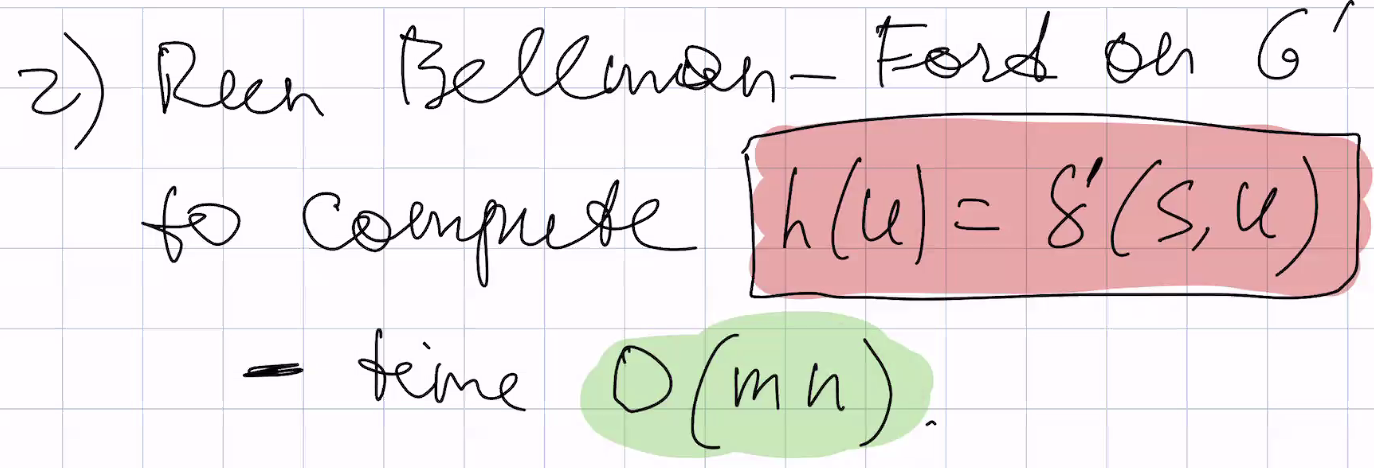 2) Run Bellman-Ford on G'
to compute h(u) = δ'(s, u)
- time O(mn).